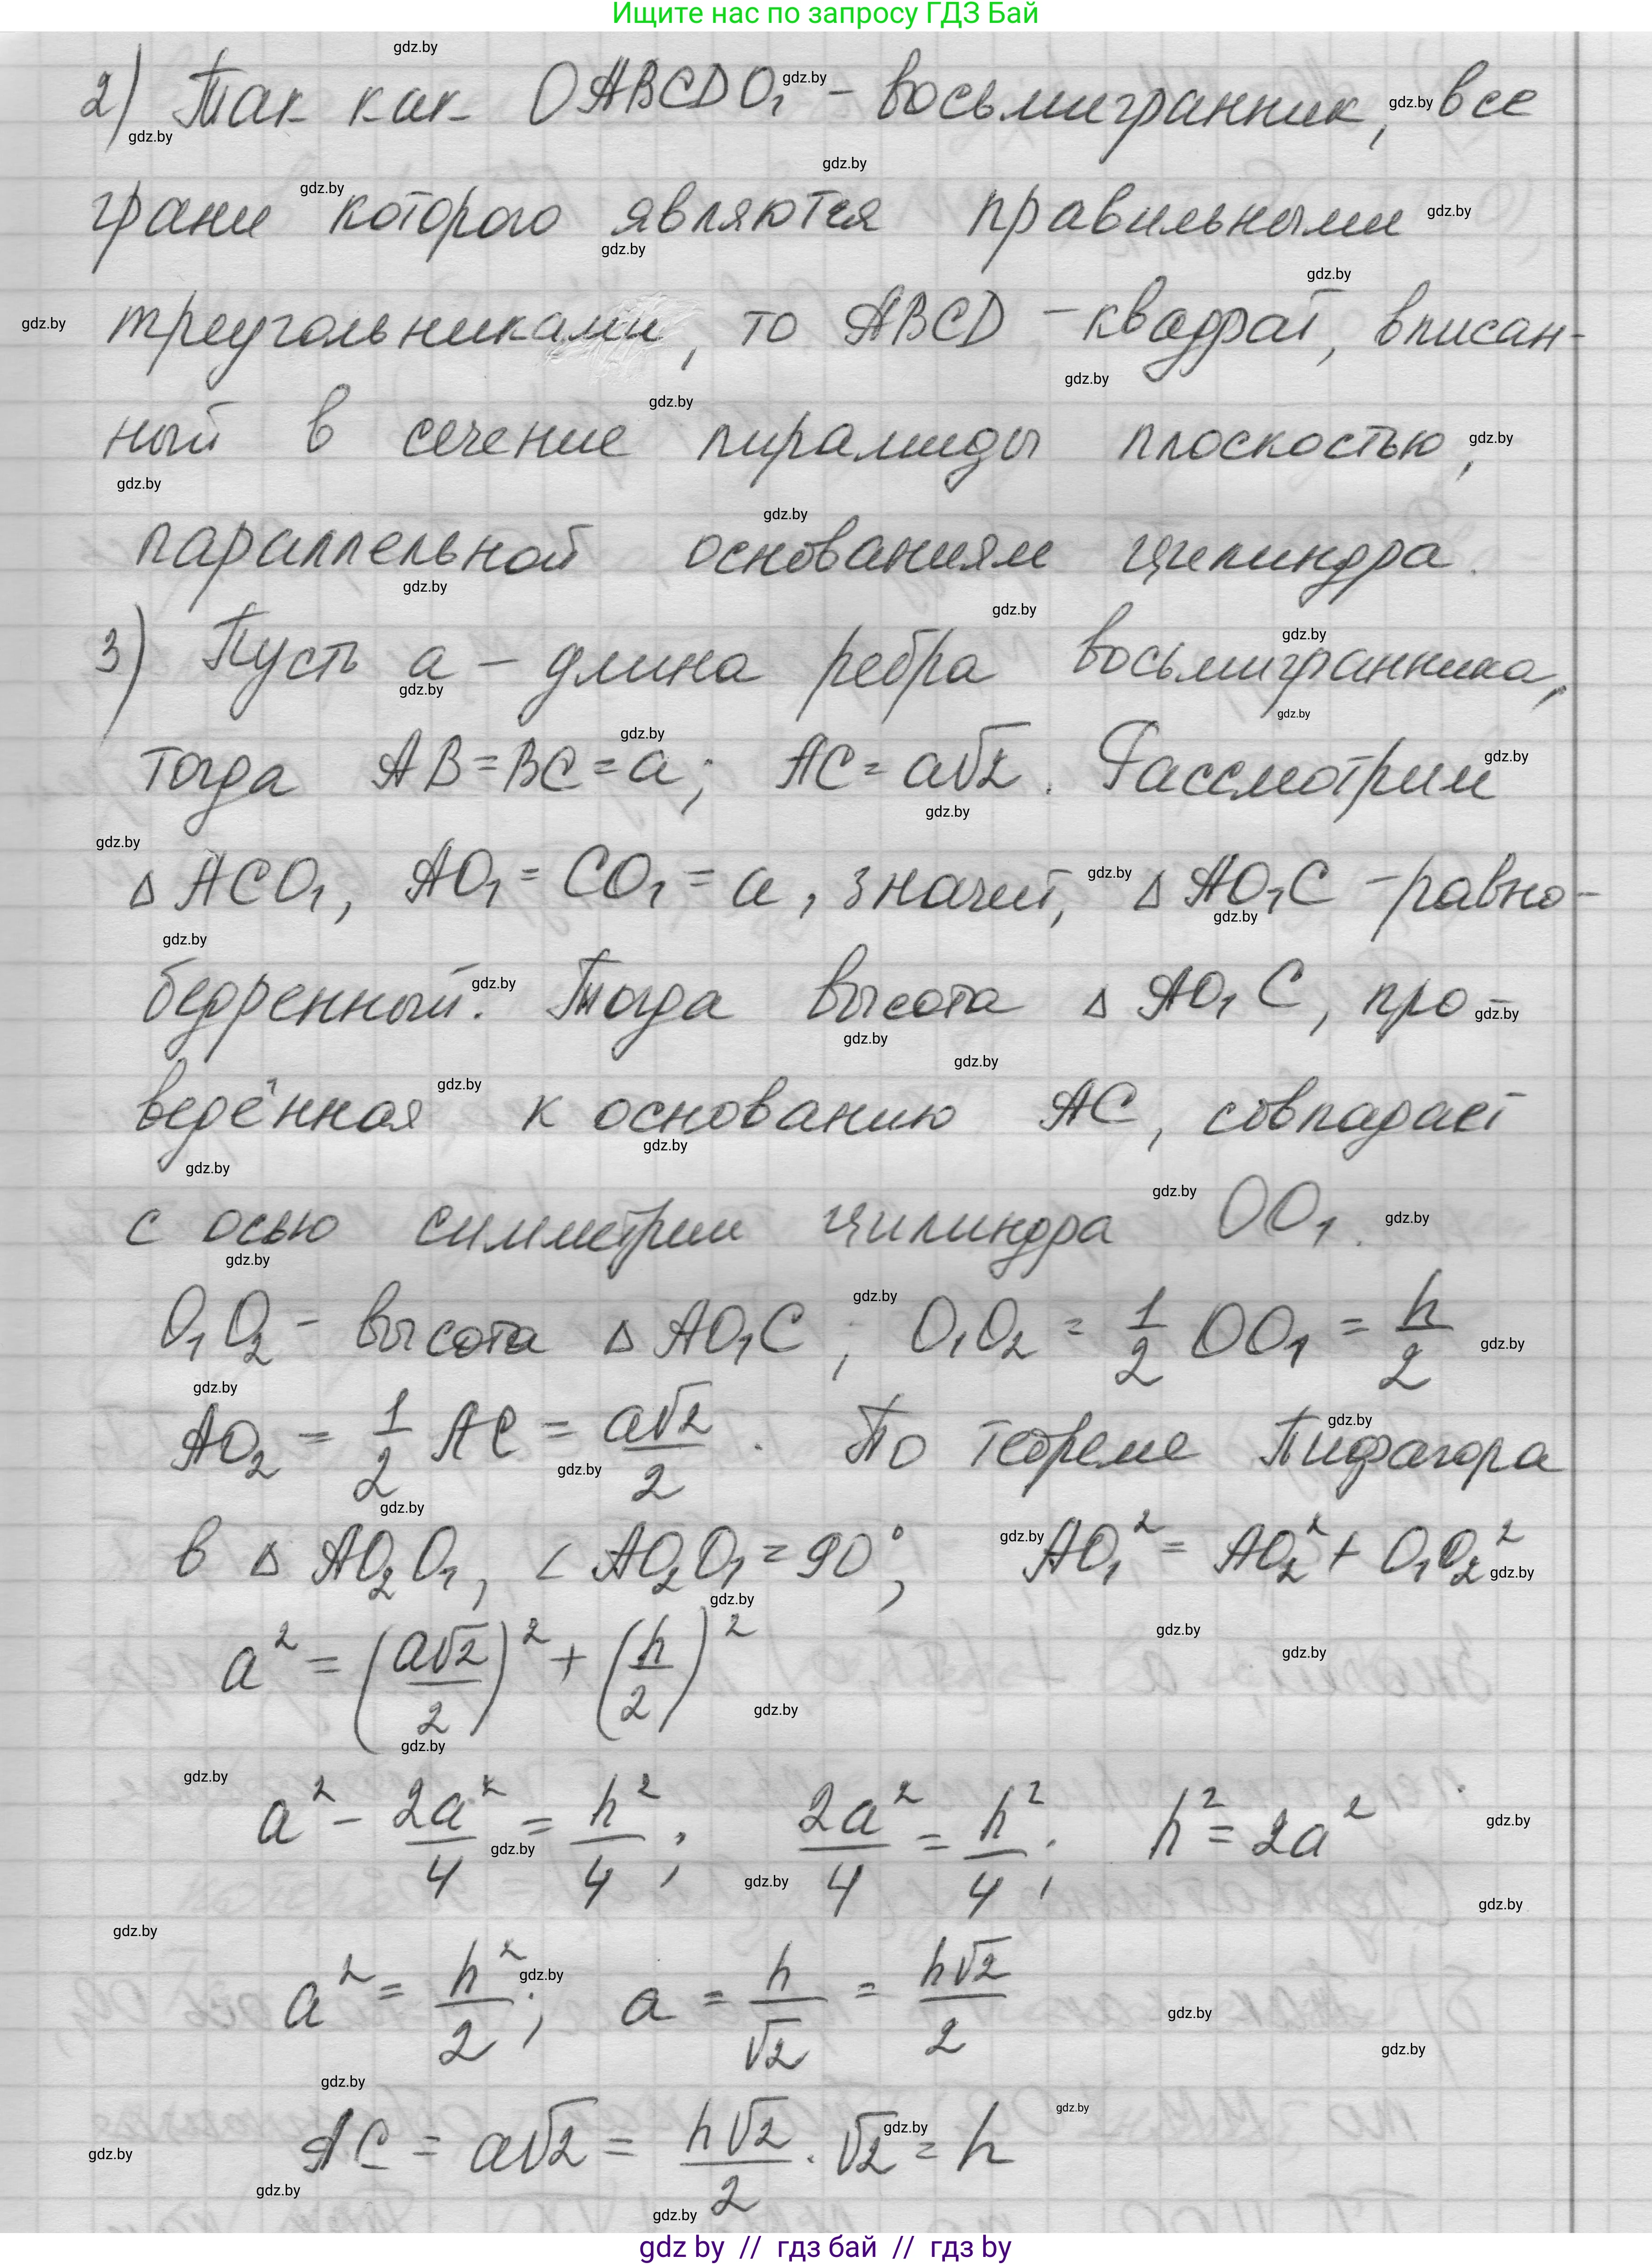 Ищите нас по запросу ГДЗ Бай
2) Так как OABCDO₁ – восьмигранник, все
грани которого являются правильными
треугольниками, то ABCD – квадрат, вписан-
ный в сечение пирамиды плоскостью,
параллельной основаниям цилиндра.
3) Пусть a – длина ребра восьмигранника,
тогда AB = BC = a; AC = a√2. Рассмотрим
△ ACO₁, AO₁ = CO₁ = a, значит, △ AO₁C – равно-
бедренный. Тогда высота △ AO₁C, про-
ведённая к основанию AC, совпадает
с осью симметрии цилиндра OO₁.
O₁O₂ – высота △ AO₁C; O₁O₂ = 1/2 OO₁ = h/2
AO₂ = 1/2 AC = a√2/2. По теореме Пифагора
в △ AO₂O₁, ∠ AO₂O₁ = 90°; AO₁² = AO₂² + O₁O₂²
a² = (a√2/2)² + (h/2)²
a² – 2a²/4 = h²/4; 2a²/4 = h²/4; h² = 2a²
a² = h²/2; a = h/√2 = h√2/2
AC = a√2 = h√2/2 · √2 = h
gdz by // гдз бай // гдз by